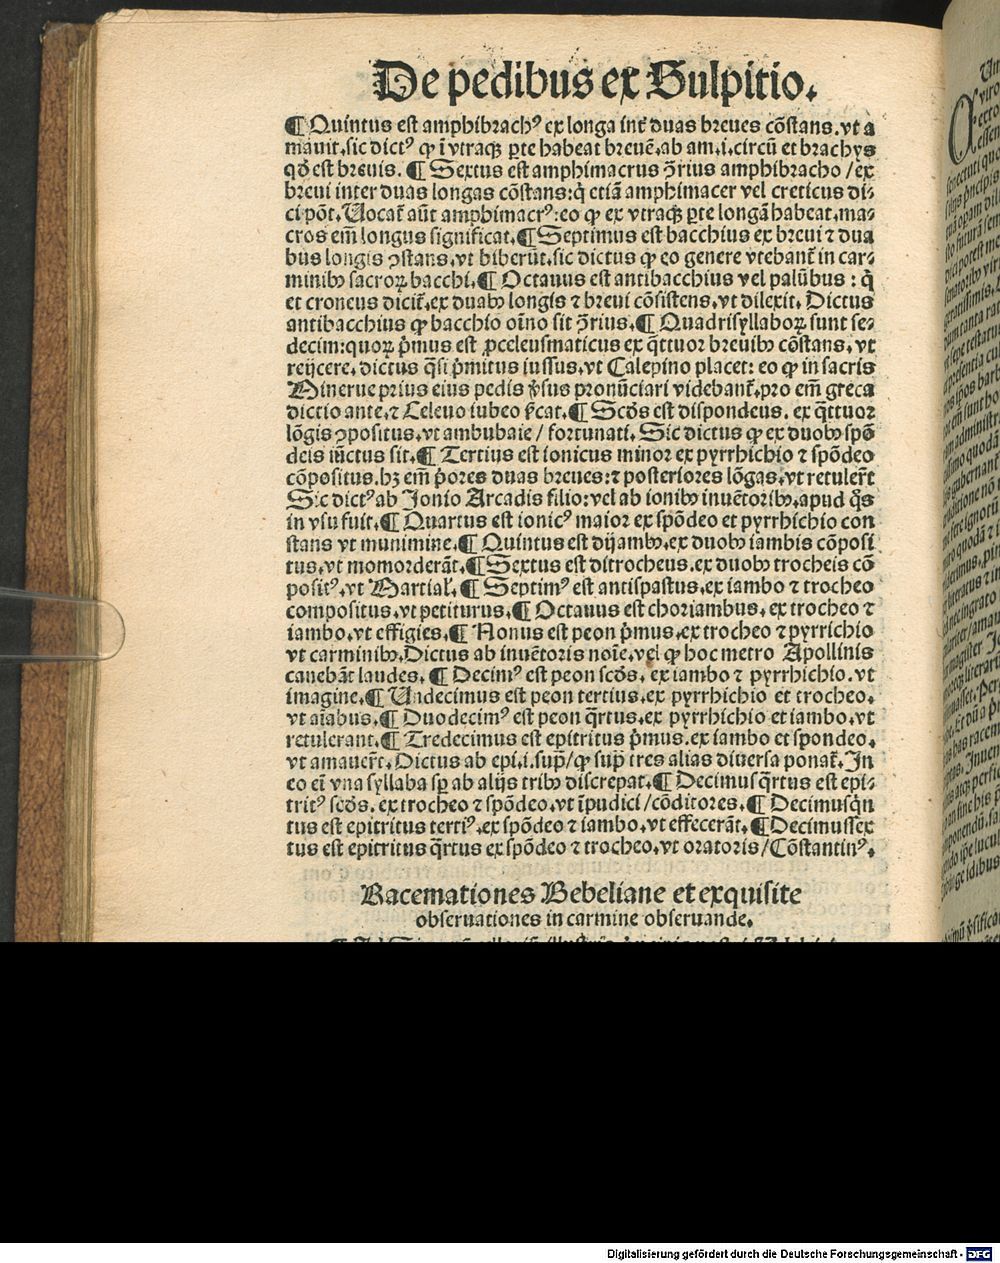 De pedibus ex Sulpitio.
¶ Quintus est amphibrachꝰ ex longa int̄ duas breues cōstans. vt a
mauit. sic dictꝰ ꝙ ī vtraqꝫ ꝑte habeat breuē. ab am. i. circū et brachys
qđ est breuis. ¶ Sextus est amphimacrus ꝯ̄rius amphibracho / ex
breui inter duas longas cōstans: q̇ etiā amphimacer vel creticus di⸗
ci pōt. Uocat̄ aūt amphimacrꝰ: eo ꝙ ex vtraqꝫ ꝑte longā habeat. ma⸗
cros em̄ longus significat. ¶ Septimus est bacchius ex breui ⁊ dua
bus longis ꝯstans. vt biberūt. sic dictus ꝙ eo genere vtebant̄ in car⸗
minibꝰ sacroꝝ bacchi. ¶ Octauus est antibacchius vel palūbus : q̇
et croneus dicit̄. ex duabꝰ longis ⁊ breui cōsistens. vt dilexit. Dictus
antibacchius ꝙ bacchio oīno sit ꝯ̄rius. ¶ Quadrisyllaboꝝ sunt se⸗
decim: quoꝝ ṗmus est ꝓceleusmaticus ex q̄ttuor breuibꝰ cōstans. vt
reijcere. dictus q̄si ṗmitus iussus. vt Calepino placet: eo ꝙ in sacris
Minerue prius eius pedis v̓sus pronūciari videbant̄. pro em̄ greca
dictio ante. ⁊ Celeuo iubeo s̓cat. ¶ Scđs est dispondeus. ex q̄ttuor
lōgis ꝯpositus. vt ambubaie / fortunati. Sic dictus ꝙ ex duobꝰ spō
deis iūctus sit. ¶ Tertius est ionicus minor ex pyrrhichio ⁊ spōdeo
cōpositus. hꝫ em̄ ṗores duas breues: ⁊ posteriores lōgas. vt retuler̄t
Sic dictꝰ ab Jonio Arcadis filio: vel ab ionibꝰ inuētoribꝰ. apud q̄s
in vsu fuit. ¶ Quartus est ionicꝰ maior ex spōdeo et pyrrhichio con
stans vt munimine. ¶ Quintus est dijambꝰ. ex duobꝰ iambis cōposi
tus. vt momorderāt. ¶ Sextus est ditrocheus. ex duobꝰ trocheis cō
positꝰ. vt Martial̓. ¶ Septimꝰ est antispastus. ex iambo ⁊ trocheo
compositus. vt petiturus. ¶ Octauus est choriambus. ex trocheo ⁊
iambo. vt effigies. ¶ Nonus est peon ṗmus. ex trocheo ⁊ pyrrichio
vt carminibꝰ. Dictus ab inuētoris noīe. vel ꝙ hoc metro Apollinis
canebāt laudes. ¶ Decimꝰ est peon scđs. ex iambo ⁊ pyrrhichio. vt
imagine. ¶ Undecimus est peon tertius. ex pyrrhichio et trocheo.
vt aīabus. ¶ Duodecimꝰ est peon q̄rtus. ex pyrrhichio et iambo. vt
retulerant. ¶ Tredecimus est epitritus ṗmus. ex iambo et spondeo.
vt amauer̄t. Dictus ab epi. i. sup̄ / ꝙ sup̄ tres alias diuersa ponat̄. In
eo ei̅ vna syllaba sꝑ ab alijs tribꝰ discrepat. ¶ Decimusq̄rtus est epi⸗
tritꝰ scđs. ex trocheo ⁊ spōdeo. vt īpudici / cōditores. ¶ Decimusq̇n
tus est epitritus tertiꝰ. ex spōdeo ⁊ iambo. vt effecerāt. ¶ Decimussex
tus est epitritus q̄rtus ex spōdeo ⁊ trocheo. vt oratoris / Cōstantinꝰ.
Racemationes Bebeliane et exquisite
obseruationes in carmine obseruande.
Digitalisierung gefördert durch die Deutsche Forschungsgemeinschaft - DFG